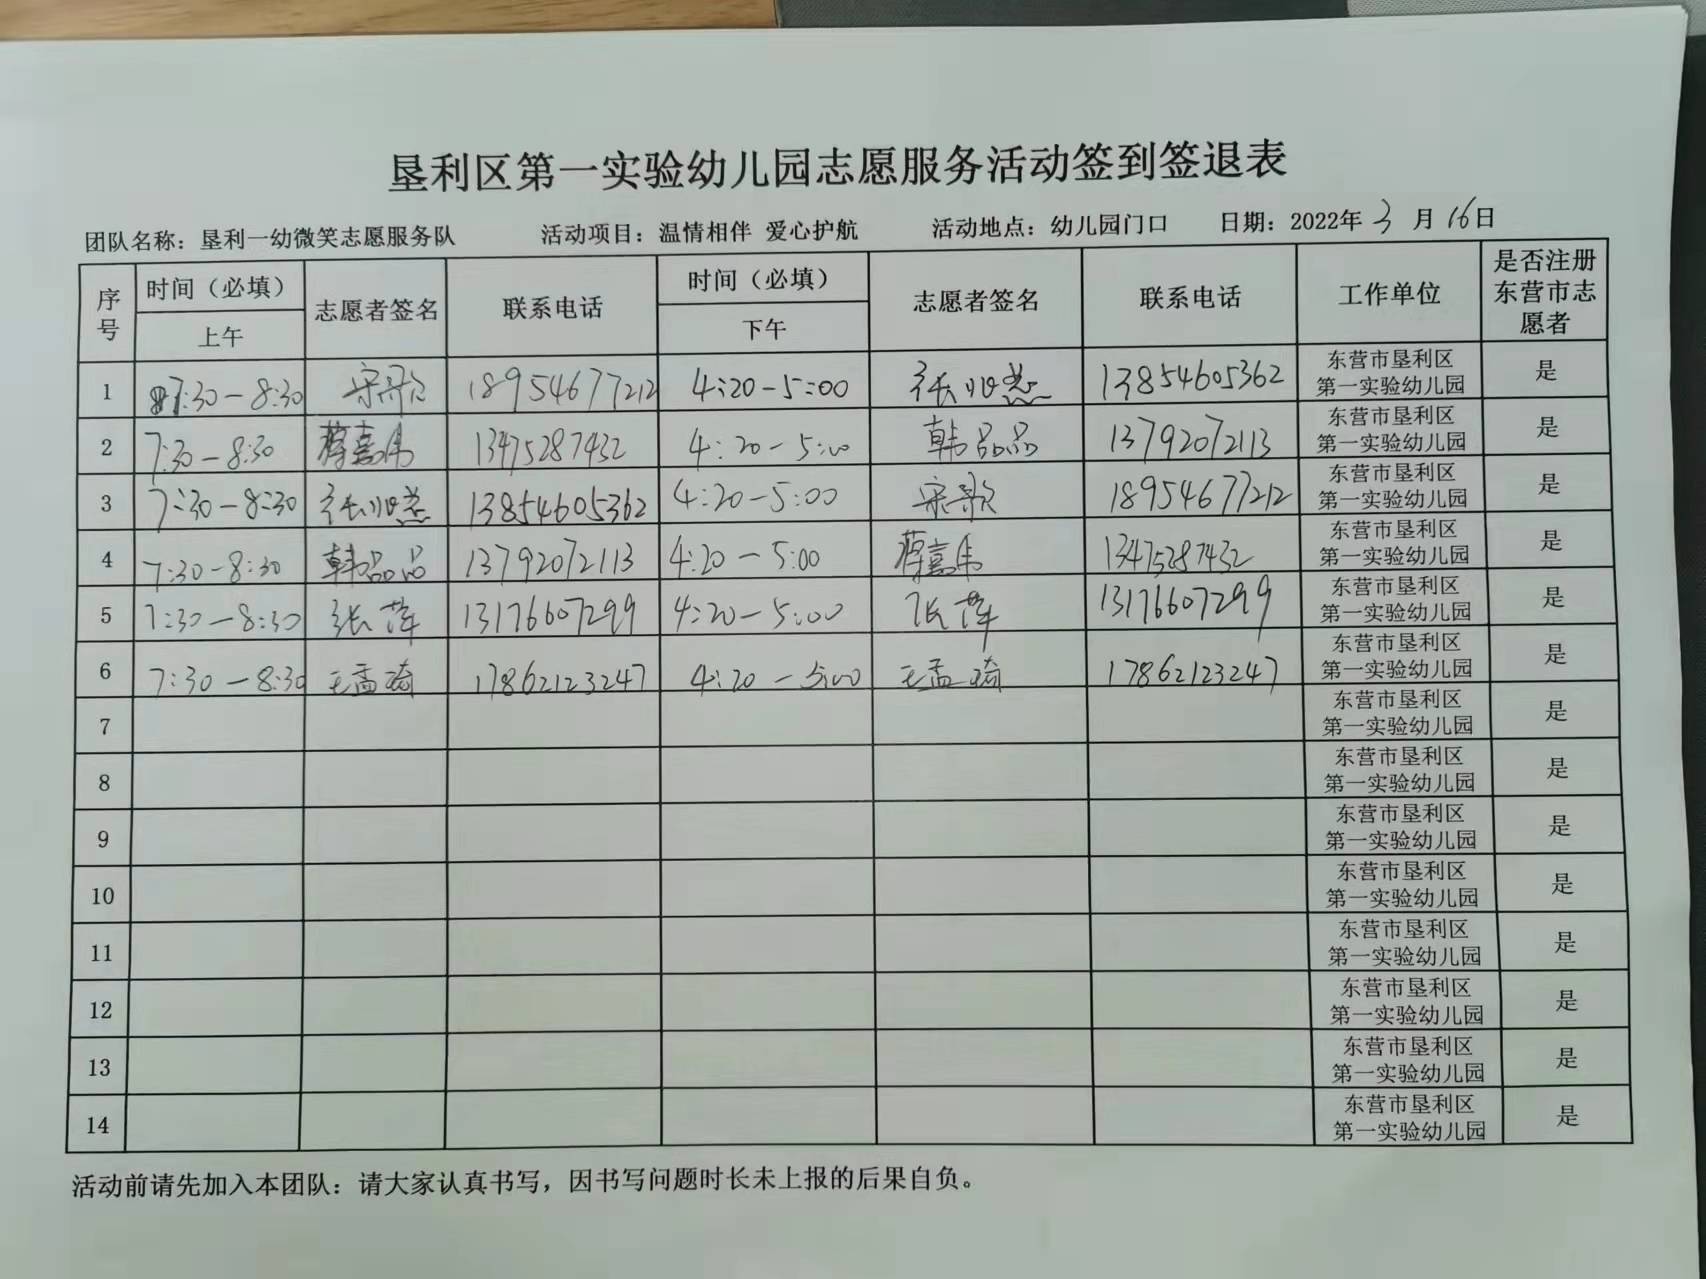 垦利区第一实验幼儿园志愿服务活动签到签退表
团队名称：垦利一幼微笑志愿服务队 活动项目：温情相伴 爱心护航 活动地点：幼儿园门口 日期：2022年3月16日
序号 时间（必填） 志愿者签名 联系电话 时间（必填） 志愿者签名 联系电话 工作单位 是否注册东营市志愿者
上午 下午
1 7:30-8:30 宋歌 18954677212 4:20-5:00 张 13854605362 东营市垦利区第一实验幼儿园 是
2 7:30-8:30 嘉伟 13475287432 4:20-5:00 韩品品 13792072113 东营市垦利区第一实验幼儿园 是
3 7:30-8:30 张 13854605362 4:20-5:00 宋歌 18954677212 东营市垦利区第一实验幼儿园 是
4 7:30-8:30 韩品品 13792072113 4:20-5:00 嘉伟 13475287432 东营市垦利区第一实验幼儿园 是
5 7:30-8:30 张萍 13176607299 4:20-5:00 张萍 13176607299 东营市垦利区第一实验幼儿园 是
6 7:30-8:30 王孟琦 17862123247 4:20-5:00 王孟琦 17862123247 东营市垦利区第一实验幼儿园 是
7 东营市垦利区第一实验幼儿园 是
8 东营市垦利区第一实验幼儿园 是
9 东营市垦利区第一实验幼儿园 是
10 东营市垦利区第一实验幼儿园 是
11 东营市垦利区第一实验幼儿园 是
12 东营市垦利区第一实验幼儿园 是
13 东营市垦利区第一实验幼儿园 是
14 东营市垦利区第一实验幼儿园 是
活动前请先加入本团队：请大家认真书写，因书写问题时长未上报的后果自负。